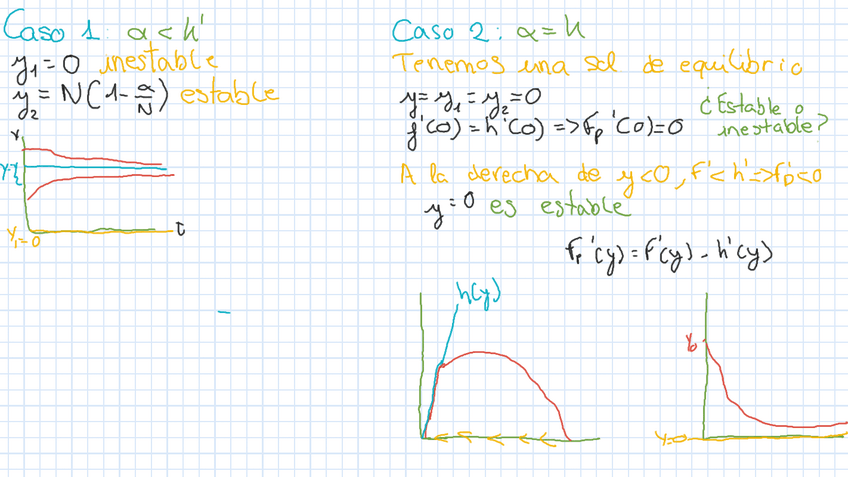 Caso 1: α < h'
y₁ = 0 inestable
y₂ = N(1 - α/N) estable
Y
Y₁=0
t
Caso 2: α = h
Tenemos una sol de equilibrio
y = y₁ = y₂ = 0
f'(0) = h'(0) => Fp'(0) = 0
¿Estable o
inestable?
A la derecha de y<0, F' < h' => fp' < 0
y = 0 es estable
Fp'(y) = F'(y) - h'(y)
h(y)
Y₀
Y=0